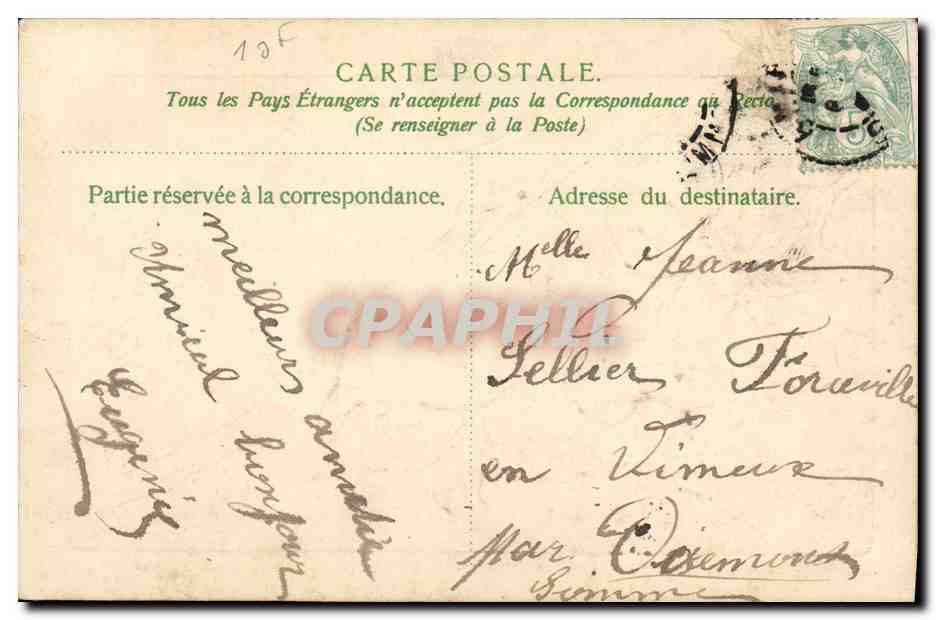 10F
CARTE POSTALE.
Tous les Pays Étrangers n'acceptent pas la Correspondance au Recto
(Se renseigner à la Poste)
Partie réservée à la correspondance.
meilleurs
bonjour
Eugénie
Adresse du destinataire.
Melle Jeanne
Sellier
en Vimeux
par Oisemont
Somme
5
CPAPHIL